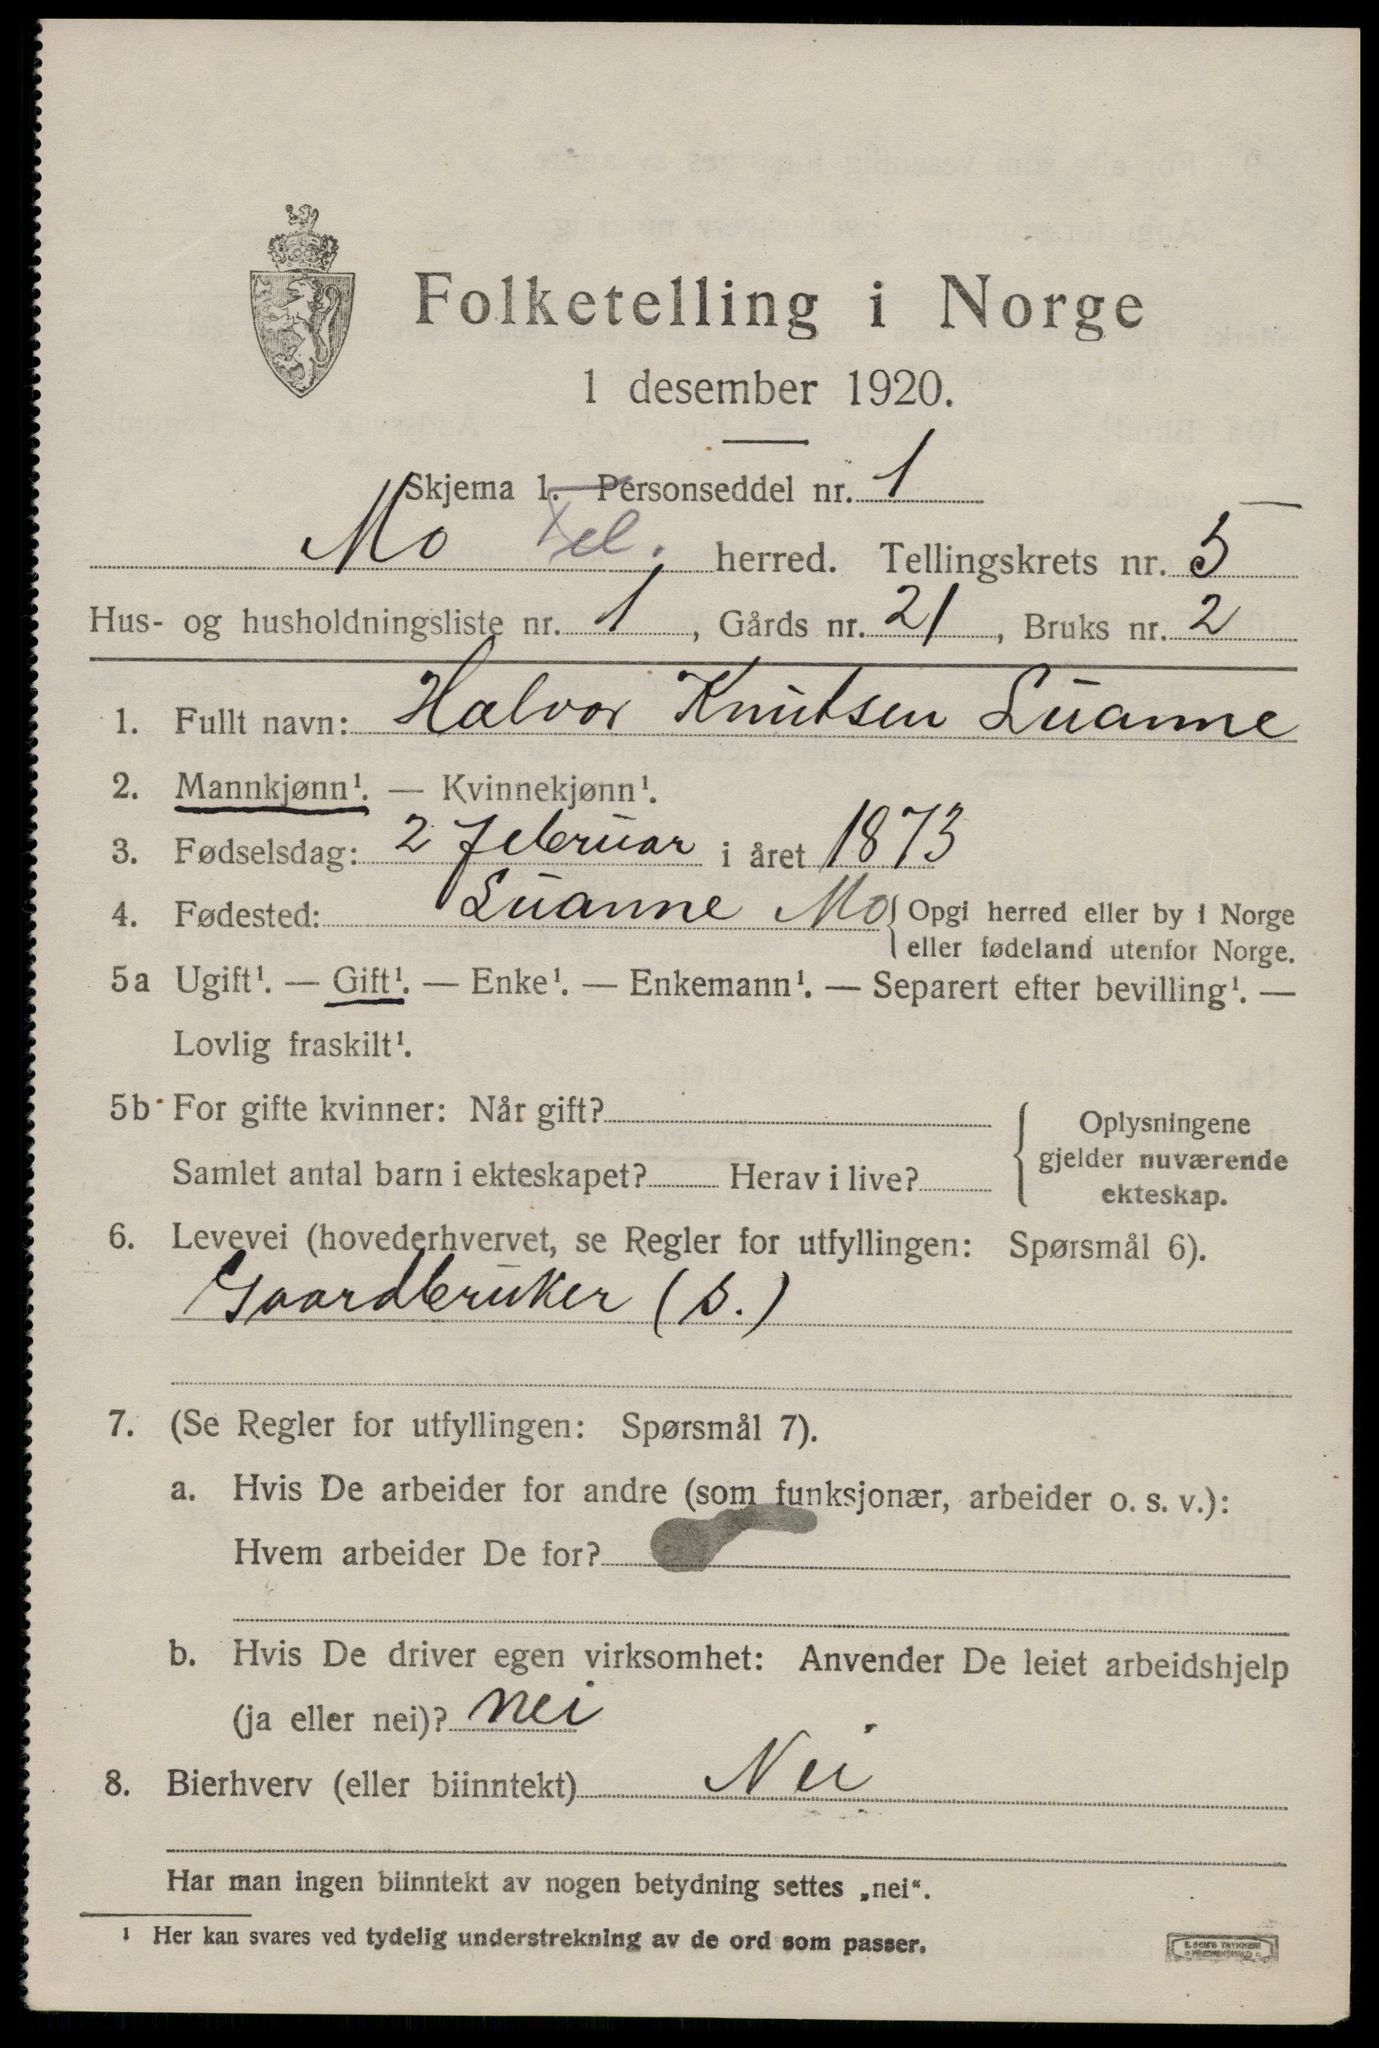 Folketelling i Norge
1 desember 1920.
Skjema 1. Personseddel nr. 1
Mo Tel. herred. Tellingskrets nr. 5
Hus- og husholdningsliste nr. 1, Gårds nr. 21, Bruks nr. 2
1. Fullt navn: Halvor Knutsen Luanne
2. Mannkjønn¹. — Kvinnekjønn¹.
3. Fødselsdag: 2 februar i året 1873
4. Fødested: Luanne Mo { Opgi herred eller by i Norge
eller fødeland utenfor Norge.
5a Ugift¹. — Gift¹. — Enke¹. — Enkemann¹. — Separert efter bevilling¹. —
Lovlig fraskilt¹.
5b For gifte kvinner: Når gift?
Samlet antal barn i ekteskapet? Herav i live?
{ Oplysningene
gjelder nuværende
ekteskap.
6. Levevei (hovederhvervet, se Regler for utfyllingen: Spørsmål 6).
Gaardbruker (s.)
7. (Se Regler for utfyllingen: Spørsmål 7).
a. Hvis De arbeider for andre (som funksjonær, arbeider o. s. v.):
Hvem arbeider De for?
b. Hvis De driver egen virksomhet: Anvender De leiet arbeidshjelp
(ja eller nei)? nei
8. Bierhverv (eller biinntekt) Nei
Har man ingen biinntekt av nogen betydning settes „nei“.
¹ Her kan svares ved tydelig understrekning av de ord som passer.